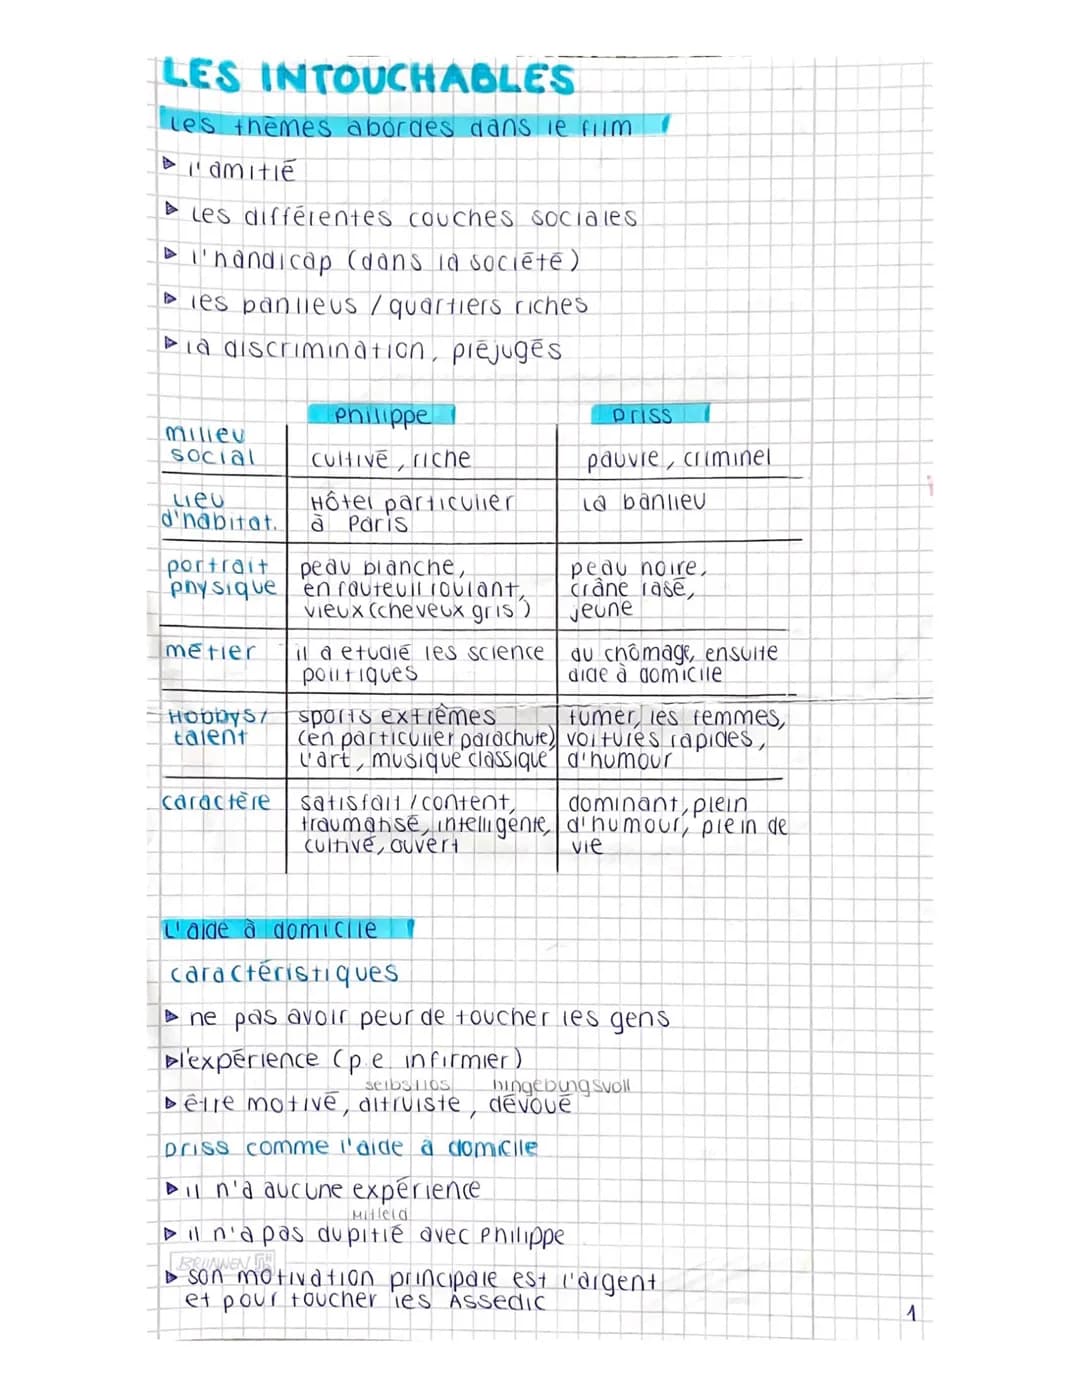 LES INTOUCHABLES
Les thèmes abordes dans le film
l'amitié
Les différentes couches sociales
l'handicap (dans la société)
les panlieus / quartiers riches
la discrimination, préjugés
Philippe
Driss
milieu
social
cultivé, riche
pauvre, criminel
Lieu
d'habitat.
Hôtel particulier
à Paris
La banlieu
portrait
physique
peau blanche,
en fauteuil roulant,
vieux (cheveux gris)
peau noire,
crâne rasé,
jeune
métier
il a etudié les science
politiques
au chômage, ensuite
aide à domicile
Hobbys/
talent
sports extrêmes
(en particulier parachute)
L'art, musique classique
fumer, les femmes,
voitures rapides,
d'humour
caractère
satisfait / content,
traumatisé, intelligente,
cultivé, ouvert
dominant, plein
d'humour, plein de
vie
L'aide à domicile
caractéristiques
ne pas avoir peur de toucher les gens
l'expérience (p.e. infirmier)
selbstlos hingebungsvoll
être motivé, altruiste, dévoué
Driss comme l'aide à domicile
il n'a aucune expérience
Mitleid
il n'a pas du pitié avec Philippe
BRUNNEN
son motivation principale est l'argent
et pour toucher les Assedic
1